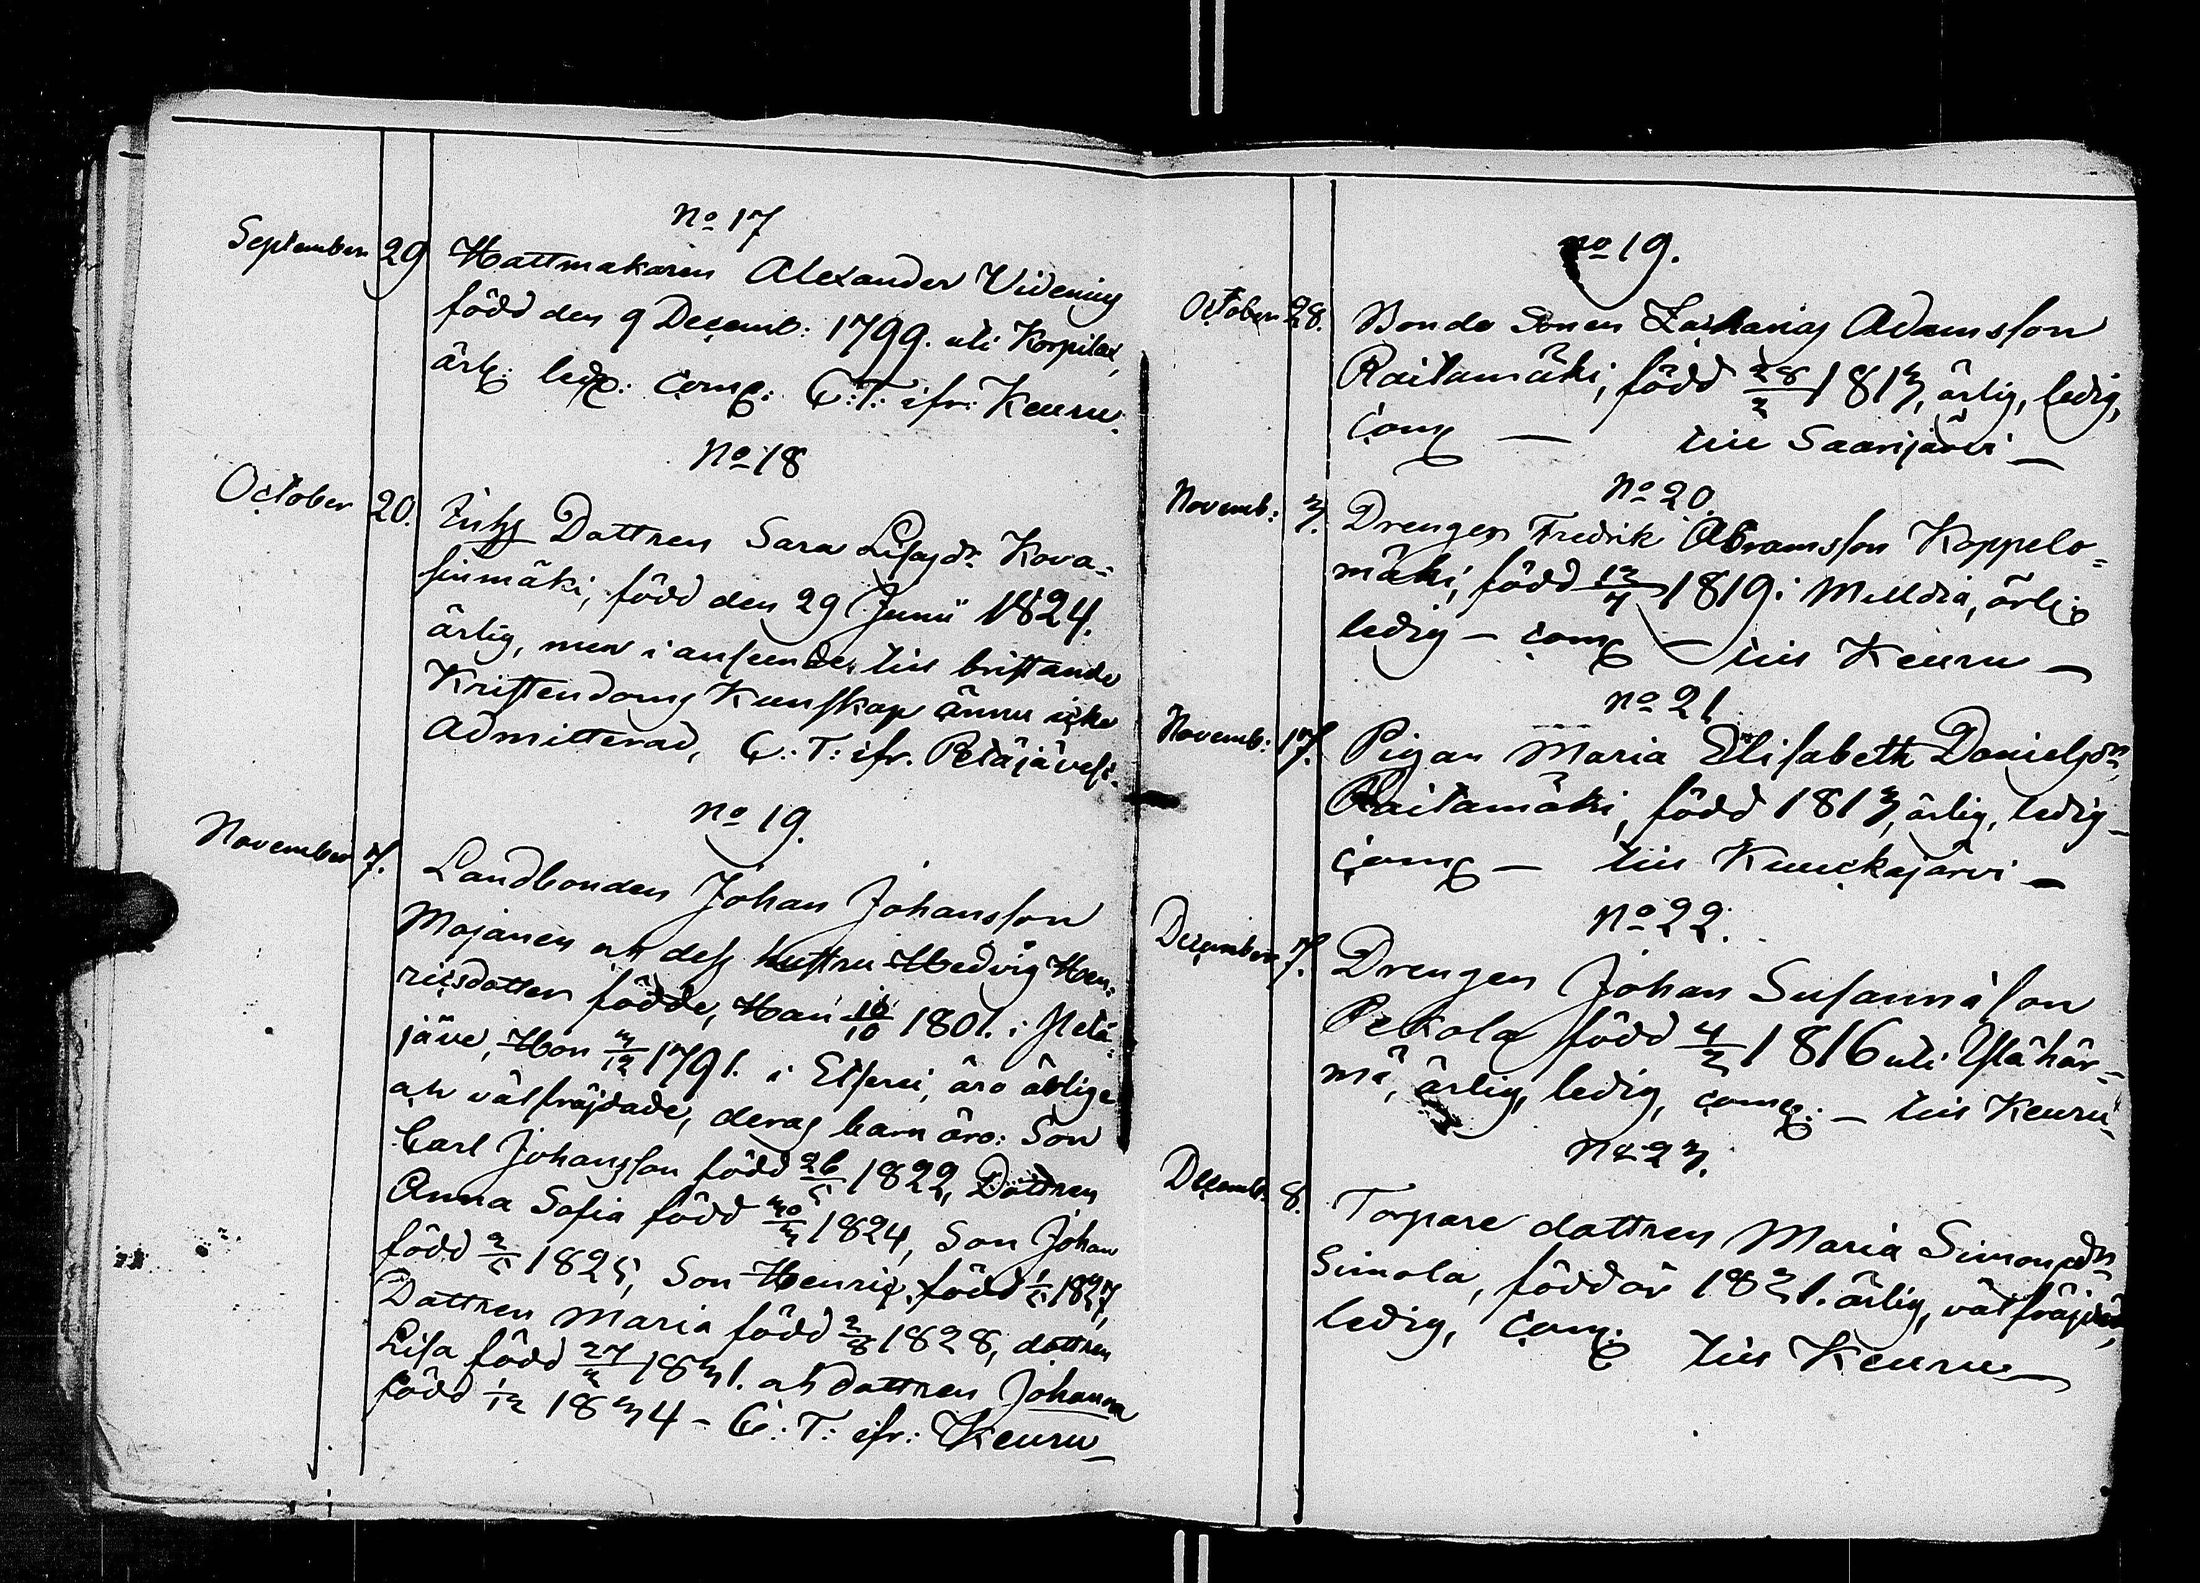 No 17
September 29 Hattmakaren Alexander Videnius
född den 9 Decemb: 1799. uti Korpilax,
ärl: led: com: C:T: ifr: Keuru.
No 18
October 20. Inhs Dottren Sara Lisasdr Kova-
sinmäki, född den 29 Junii 1824.
ärlig, men i anseende till bristande
Kristendoms Kunskap ännu icke
Admitterad, C:T: ifr. Petäjävesi.
No 19.
November 7. Landbonden Johan Johansson
Mojanen och dess hustru Hedvig Hen-
ricsdotter födde, Han 10/10 1801. i Petä-
jäve, Hon 3/12 1791. i Etseri, äro ärlige
och välfräjdade, deras barn äro: Son
Carl Johansson född 26/5 1822, Dottren
Anna Sofia född 30/3 1824, Son Johan
född 2/5 1825, Son Henric född 1/5 1827,
Dottren Maria född 2/8 1828, dottren
Lisa född 27/3 1831. och Dottren Johanna
född 1/12 1834 - C:T: ifr: Keuru
no 19.
October 28. Bonde Sonen Zacharias Adamsson
Raitamäki, född 28/2 1813, ärlig, ledig,
com — till Saarijärvi —
No 20.
Novemb: 3. Drengen Fredrik Abramsson Koppelo-
mäki, född 12/7 1819 i Multia, ärlig
ledig — com — till Keuru —
no 21
Novemb: 17. Pigan Maria Elisabeth Danielsdr
Raitamäki, född 1813, ärlig, ledig —
com — till Kuuckajärvi —
No 22.
December 7. Drengen Johan Susannäson
Pekola född 4/2 1816 uti Ylihär-
mä, ärlig, ledig, com: — till Keuru
No 23.
Decemb. 8. Torpare dottren Maria Simonsdr
Simola, född år 1821. ärlig, välfräjdad,
ledig, com: till Keuru